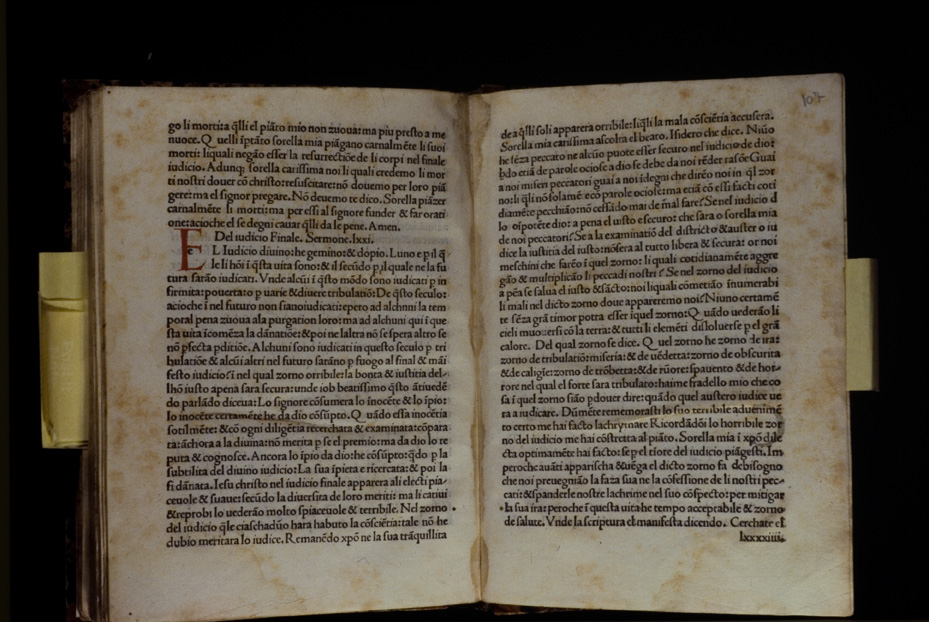 go li morti:a q̄lli el piāto mio non zuoua:ma piu presto a me
nuoce. Quelli īptāto sorella mia piāgano carnalmēte li suoi
morti: liquali negāo esser la resurrectiōe de li corpi nel finale
iudicio. Adunq; sorella carissima noi li quali credemo li mor
ti nostri douer cō christo:resuscitare:nō douemo per loro piā
gere:ma el signor pregare. Nō deuemo te dico. Sorella piāzer
carnalmēte li morti:ma per essi al signore funder & far orati
one:acioche el se degni cauar q̄lli da le pene. Amen.
Del iudicio Finale. Sermone.lxxi.
EL Iudicio diuino:he gemino:& dopio. Luno e p il q̄
le li hōi ī q̄sta vita sono:& il secūdo p,il quale ne la fu
tura sarāo iudicati. Vnde alcūi ī q̄sto mōdo sono iudicati p in
firmita:pouerta:o p uarie & diuere tribulatiō: De q̄sto seculo:
acioche ī nel futuro non sianoiudicati:epero ad alchnni la tem
poral pena zuoua ala purgation loro:ma ad alchuni qui ī que
sta uita īcomēza la dānatiōe:&poi ne laltra nō se spera altro se
nō pfecta pditiōe. Alchuni sono iudicati in questo seculo p tri
bulatiōe & alcūi altri nel futuro sarāno p fuogo al final & māi
festo iudicio:ī nel qual zorno orribile:la bonta & iustitia del⸗
lhō iusto apena sara secura:unde iob beatissimo q̄sto ātiuedē
do parlādo diceua:Lo signore cōsumera lo inocēte & lo īpio:
lo inocēte certamēte he da dio cōsūpto. Quādo essa inocētia
sotilmēte:&cō ogni diligētia recerchata & examinata:cōpara
ta:āchora a la diuina:nō merita p se el premio:ma da dio lo re
puta & cognosce. Ancora lo īpio da dio:he cōsūpto:q̄do p la
subtilita del diuino iudicio: La sua īpieta e ricercata:& poi la
fi dānata. Iesu christo nel iudicio finale apparera ali electi pia⸗
ceuole & suaue:secūdo la diuersita de loro meriti: ma li catiui
&reprobi lo uederāo molto spiaceuole & terribile. Nel zorno
del iudicio q̄le ciaschadūo hara habuto la cōsciētia:tale nō he
dubio meritara lo iudice. Remanēdo xpō ne la sua trāquillita
107
de a q̄lli soli apparera orribile:liq̄li la mala cōsciētia accusera.
Sorella mia carissima ascolta el beato. Isidero che dice. Niūo
he sēza peccato ne alcūo puote esser securo nel iudicio de dio:
qdo etiā de parole ociose a dio se debe da noi rēder rasōe Guai
a noi miseri peccatori guai a noi īdegni che dirēo noi in ql zor
no:li qli nō solamē:eco parole ociose:ma etiā cō essi facti coti
diamēte pecchiāo:nō cessādo mai de mal fare? Se nel iudicio d
lo oīpotēte dio: a pena el iusto e securo: che sara o sorella mia
de noi peccatori? Se a la examinatiō del districto & auster o iu
dice la iustitia del iusto:nōsera al tutto libera & secura: or noi
meschini che farēo ī quel zorno: li quali cotidianamēte aggre
gāo & multiplicāo li peccadi nostri? Se nel zorno del iudicio
a pēa se salua el iusto & sācto:noi liquali cōmetiāo īnumerabi
li mali nel dicto zorno doue appareremo noi? Niuno certamē
te sēza grā timor potra esser iquel zorno: Quādo uederāo li
cieli muo:ersi cō la terra:& tutti li elemēti disloluerse p el grā
calore. Del qual zorno se dice. Quel zorno he zorno de ira:
zorno de tribulatiō:miseria:& de uēdetta:zorno de obscurita
&de caligie:zorno de trōbetta:&de rūore:spauento & de hor⸗
rore nel qual el forte sara tribulato:haime fradello mio che co
sa ī quel zorno siāo p douer dire:quādo quel austero iudice ue
ra a iudicare. Dūmēte rememorasti lo suo terribile aduenimē
to certo me hai facto lachrymare Ricordādōi lo horribile zor
no del iudicio me hai cōstretta al piāto. Sorella mia ī xpō dile
cta optimamēte hai facto: se p el tiore del iudicio piāgesti. Im
peroche auāti apparischa &uēga el dicto zorno fa debisogno
che noi preuegniāo la faza sua ne la cōfessione de li nostri pec⸗
cati:&spanderle nostre lachrime nel suo cōspecto:per mitigar
la sua ira:peroche ī questa uita he tempo acceptabile & zorno
de salute. Vnde la scriptura el manifesta dicendo. Cerchate el
lxxxxiiii.